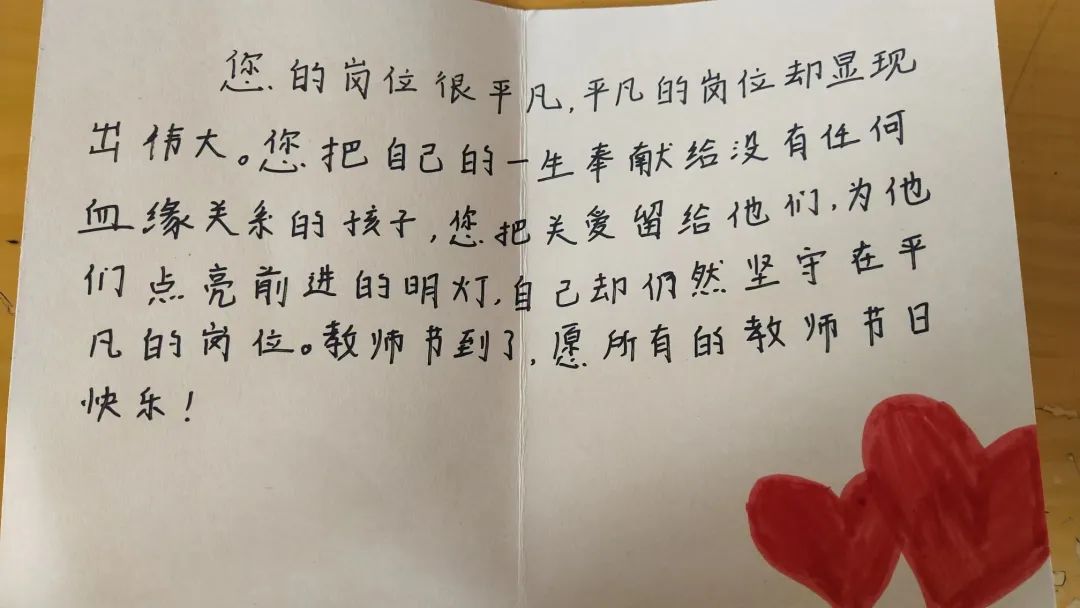 您的岗位很平凡,平凡的岗位却显现
出伟大。您把自己的一生奉献给没有任何
血缘关系的孩子,您把关爱留给他们,为他
们点亮前进的明灯,自己却仍然坚守在平
凡的岗位。教师节到了,愿所有的教师节日
快乐!